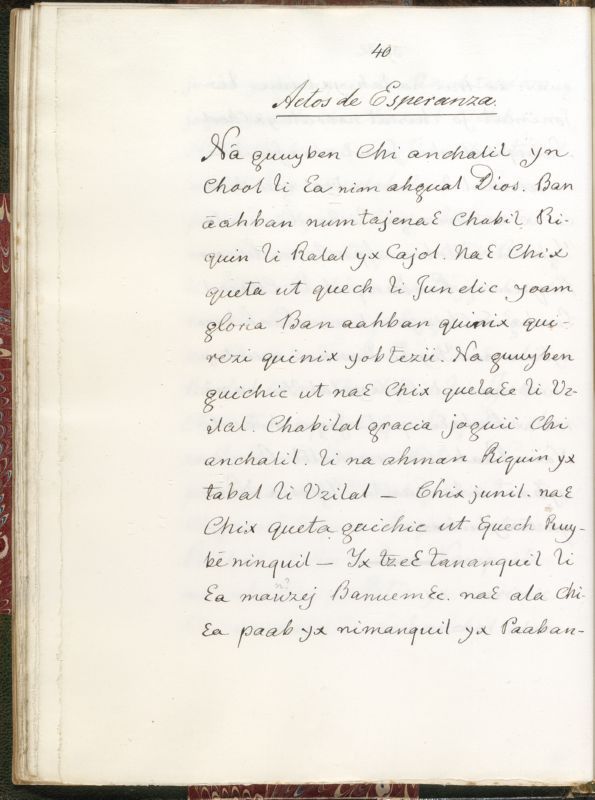 40
Actos de Esperanza.
Nā quuyben Chi anchalil yn
Chool li Ea nim ahgual Dios. Ban
āahban numtajenaE Chabil Ri-
quin li Ralal yx Cajol. NaE Chix
queta ut quech li Junelic yoam
gloria Ban aahban quinix qui-
rezi quinix yobtezii. Na quuyben
guichic ut naE Chix quelaEe li Vz-
ilal. Chabilal gracia joguii Chi
anchalil. li na ahman Riquin yx
tabal li Vzilal — Chix junil. naE
Chix queta guichic ut Equech Ruy-
bē ninquil — Yx tzeE tananquil li
n?
Ea mauzej BanuemEc. naE ala Chi-
Ea paab yx nimanquil yx Paaban-